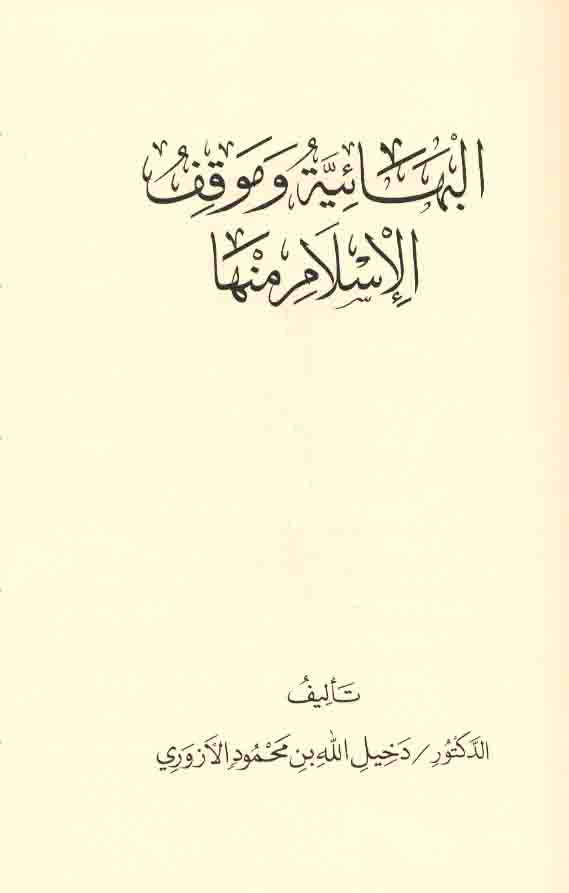 البَهَائِيَّةُ وَمَوقِفُ
الإِسْلَامِ مِنْهَا
تَأليفُ
الدَّكتُورِ / دَخِيلِ اللهِ بنِ مَحْمُودٍ الأَزوَرِي